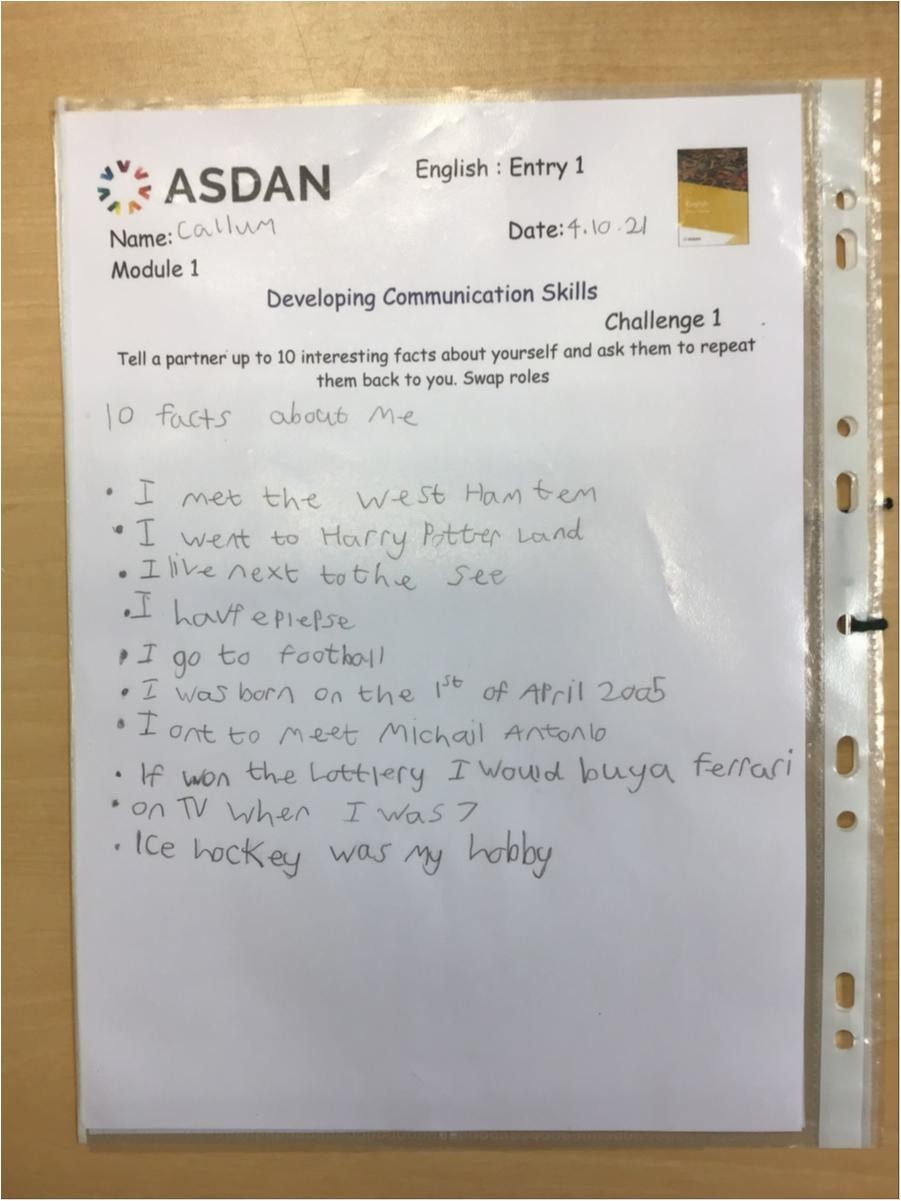 ASDAN
English : Entry 1
Name: Callum
Date: 4.10.21
Module 1
Developing Communication Skills
Challenge 1
Tell a partner up to 10 interesting facts about yourself and ask them to repeat
them back to you. Swap roles
10 facts about me
• I met the west Ham tem
• I went to Harry Potter Land
• I live next to the see
• I have epiepse
• I go to football
• I was born on the 1st of April 2005
• I ont to meet Michail Antonio
• If won the Lottlery I would buy a ferrari
• on TV when I was 7
• Ice hockey was my hobby